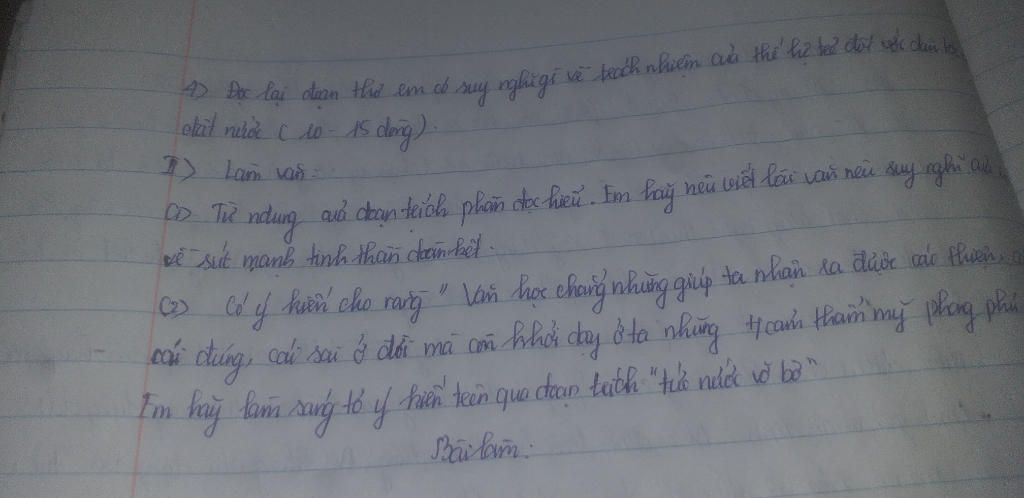 4) Đọc lại đoạn thơ em có suy nghĩ gì về trách nhiệm của thế hệ trẻ đối với dân
đất nước ( 10 - 15 dòng ).
II) Làm văn:
C1) Từ ndung của đoạn trích phần đọc hiểu. Em hãy nêu viết bài văn nêu suy nghĩ của
về sức mạnh tinh thần đoàn kết.
C2) Có ý kiến cho rằng " Văn học chẳng những giúp ta nhận ra được cái thiện,
cái đúng, cái sai ở đời mà còn khơi dậy ở ta những t/cảm thẩm mỹ phong phú
Em hãy làm sáng tỏ ý kiến trên qua đoạn trích "tức nước vỡ bờ"
Bài làm: